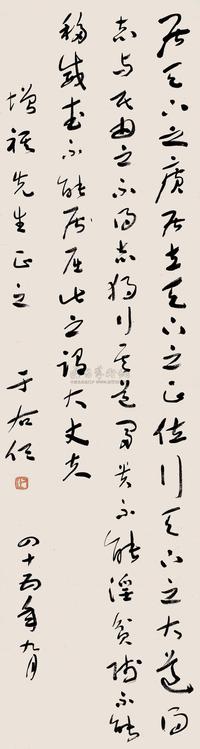 居天下之廣居立天下之正位行天下之大道得
志与民由之不得志獨行其道富贵不能淫貧賤不能
移威武不能屈此之謂大丈夫
增祺先生正之
于右任
四十五年九月